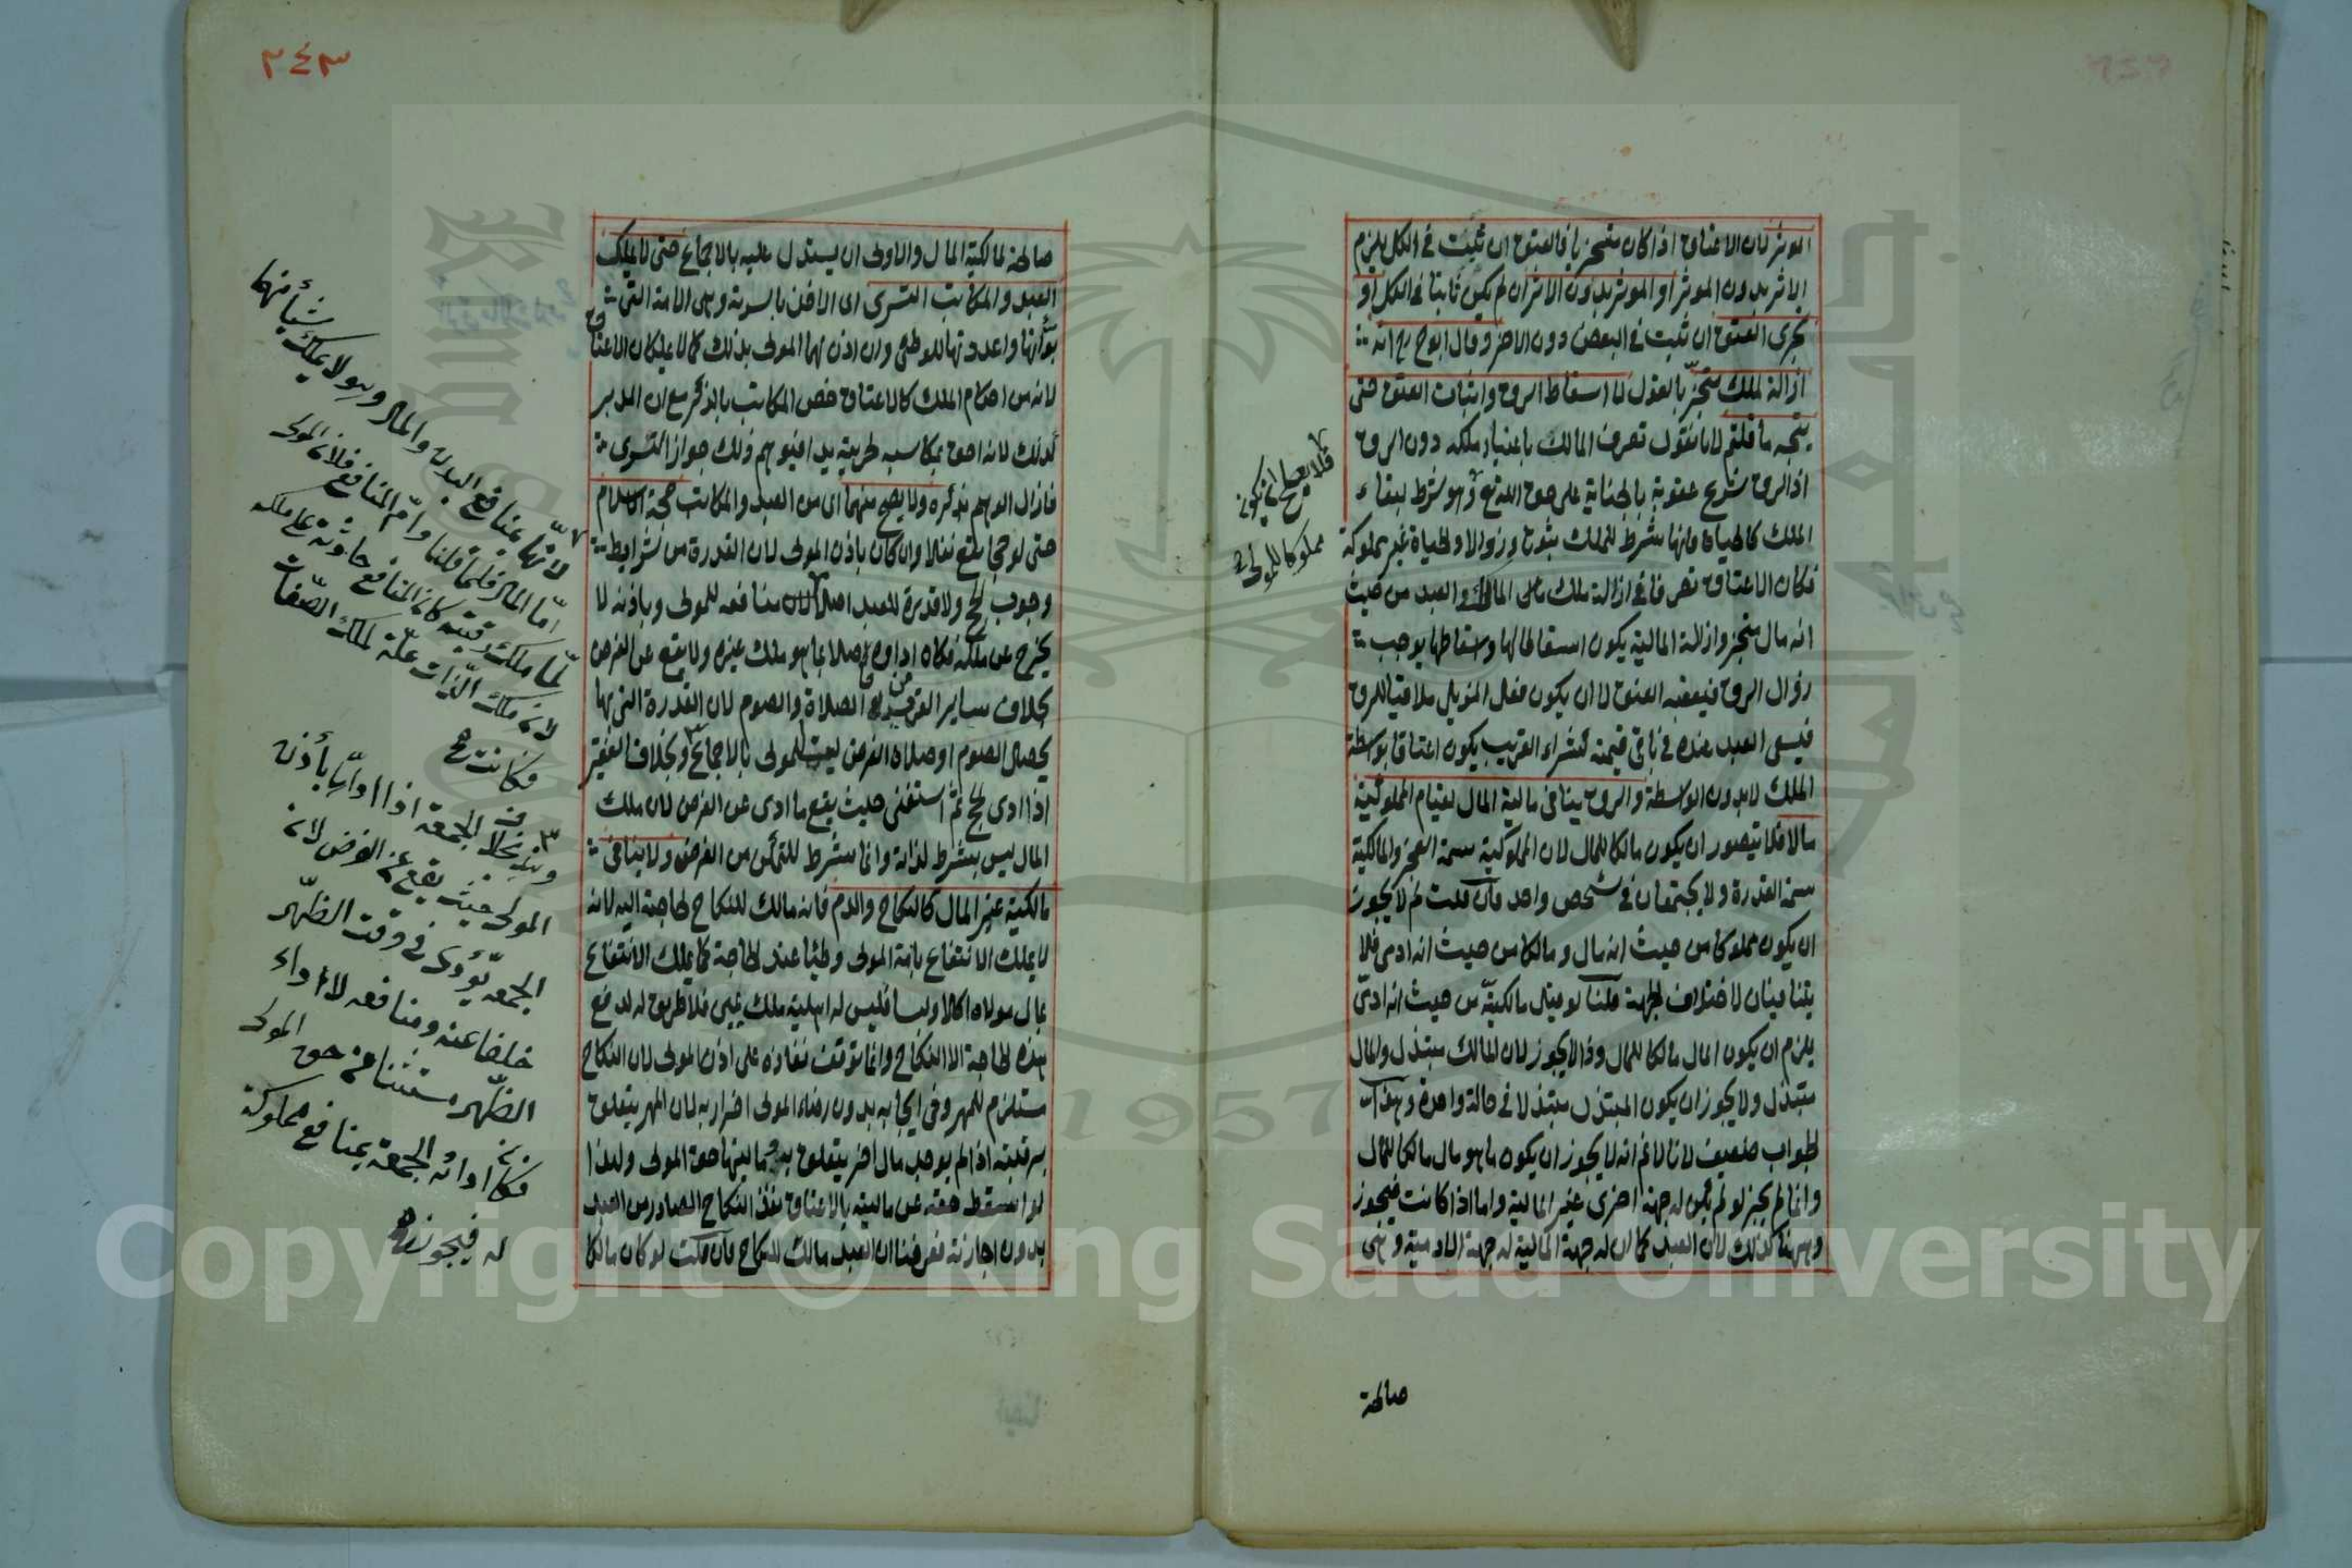 المؤثر لان الاعتاق اذا كان متجزيا فالعتق ان ثبت في الكل يلزم
الاثر بدون المؤثر او المؤثر بدون الاثر ان لم يكن ثابتا في الكل او
تجزى العتق ان ثبت في البعض دون الاخر وقال ابو ح رح انه
ازالة لملك متجز بالقول لا اسقاط الرق واثبات العتق حتى
يتجه ما قلتم لانا نقول تصرف المالك باعتبار ملكه دون الرق
اذ الرق شرع عقوبة بالجناية على حق الله تع وهو شرط لبقاء
الملك كالحياة فانها شرط للملك ثبوتا وزوالا والحياة غير مملوكة
فكان الاعتاق تصرفا في ازالة ملك مالى المالك والعبد من حيث
انه مال متجز وازالة المالية يكون اسقاطا لها واسقاطها يوجب
زوال الرق فيعقبه العتق لا ان يكون فعل المزيل ملاقيا للرق
فيسعى العبد عنده في باقى قيمته كشراء القريب يكون اعتاقا بواسطة
الملك لا بدون الواسطة والرق ينافى مالية المال لقيام المملوكية
مالا فلا يتصور ان يكون مالكا للمال لان المملوكية سمة العجز والمالكية
سمة القدرة ولا يجتمعان في شخص واحد فان قلت لم لا يجوز
ان يكون مملوكا من حيث انه مال ومالكا من حيث انه ادمى فلا
يتنافيان لاختلاف الجهة قلنا لو قيل مالكية من حيث انه ادمى
يلزم ان يكون المال مالكا للمال وذا لا يجوز لان المالك مبتذل والمال
مبتذل ولا يجوز ان يكون المبتذل مبتذلا في حالة واحدة وهذا
الجواب ضعيف لانا لا نم انه لا يجوز ان يكون ما هو مال مالكا للمال
وانما لم يجز لو لم يكن له جهة اخرى غير المالية واما اذا كانت فيجوز
وههنا كذلك لان العبد كما ان له جهة المالية له جهة الادمية وهى
فلا يصح ان يكون
مملوكا للمولى
صالحة
٢٤٣
صالحة لمالكية المال والاولى ان يستدل عليه بالاجماع حتى لا يملك
العبد والمكاتب التسرى اى الاخذ بالسرية وهى الامة التى
بوأتها واعددتها للوطئ وان اذن لهما المولى بذلك كما لا يملكان الاعتاق
لانه من احكام الملك كالاعتاق خص المكاتب بالذكر مع ان المدبر
كذلك لانه احق بمكاسبه لحريته يدا فيوهم ذلك جواز التسرى
فازال الوهم بذكره ولا يصح منهما اى من العبد والمكاتب حجة الاسلام
حتى لو حجا يقع نفلا وان كان باذن المولى لان القدرة من شرايط
وجوب الحج ولا قدرة للعبد اصلا لان منافعه للمولى وباذنه لا
يخرج عن ملكه فكان اداؤه حاصلا بما هو ملك غيره ولا يقع عن الفرض
بخلاف ساير القرب من الصلاة والصوم لان القدرة التى بها
يحصل الصوم او صلاة الفرض ليست للمولى بالاجماع وبخلاف الفقير
اذا ادى الحج ثم استغنى حيث يقع ما ادى عن الفرض لان ملك
المال ليس بشرط لذاته وانما شرط للتمكن من الفرض ولا ينافى
مالكية غير المال كالنكاح والدم فانه مالك للنكاح لحاجته اليه لانه
لا يملك الانتفاع بامة المولى وطئيا عند الحاجة كما يملك الانتفاع
بمال مولاه اكلا ولبسا فليس له اهلية ملك يمين فلا طريق له لدفع
هذه الحاجة الا النكاح وانما توقف نفاذه على اذن المولى لان النكاح
مستلزم للمهر وفى ايجابه بدون رضاء المولى اضرار به لان المهر يتعلق
برقبته اذا لم يوجد مال اخر يتعلق به وماليتها حق المولى ولهذا
لو اسقط حقه عن ماليته بالاعتاق نفذ النكاح الصادر من العبد
بدون اجازته فعرفنا ان العبد مالك للنكاح فان قلت لو كان مالكا
لانها بمنافع البدن والمال وهو لا يملك شيأ منهما
اما المال فلما قلنا واما المنافع فلان المولى
لما ملك رقبته كان المنافع حادثة على ملكه
لان ملك الذات علة لملك الصفات
فكانت
وبخلاف الجمعة اذا اداها بأذن
المولى حيث يقع عن الفرض لان
الجمعة تؤدى في وقت الظهر
خلفا عنه ومنافعه لاداء
الظهر مستثناة من حق المولى
فكان اداؤه الجمعة بمنافع مملوكة
له فيجوز
Copyright © King Saud University
1957